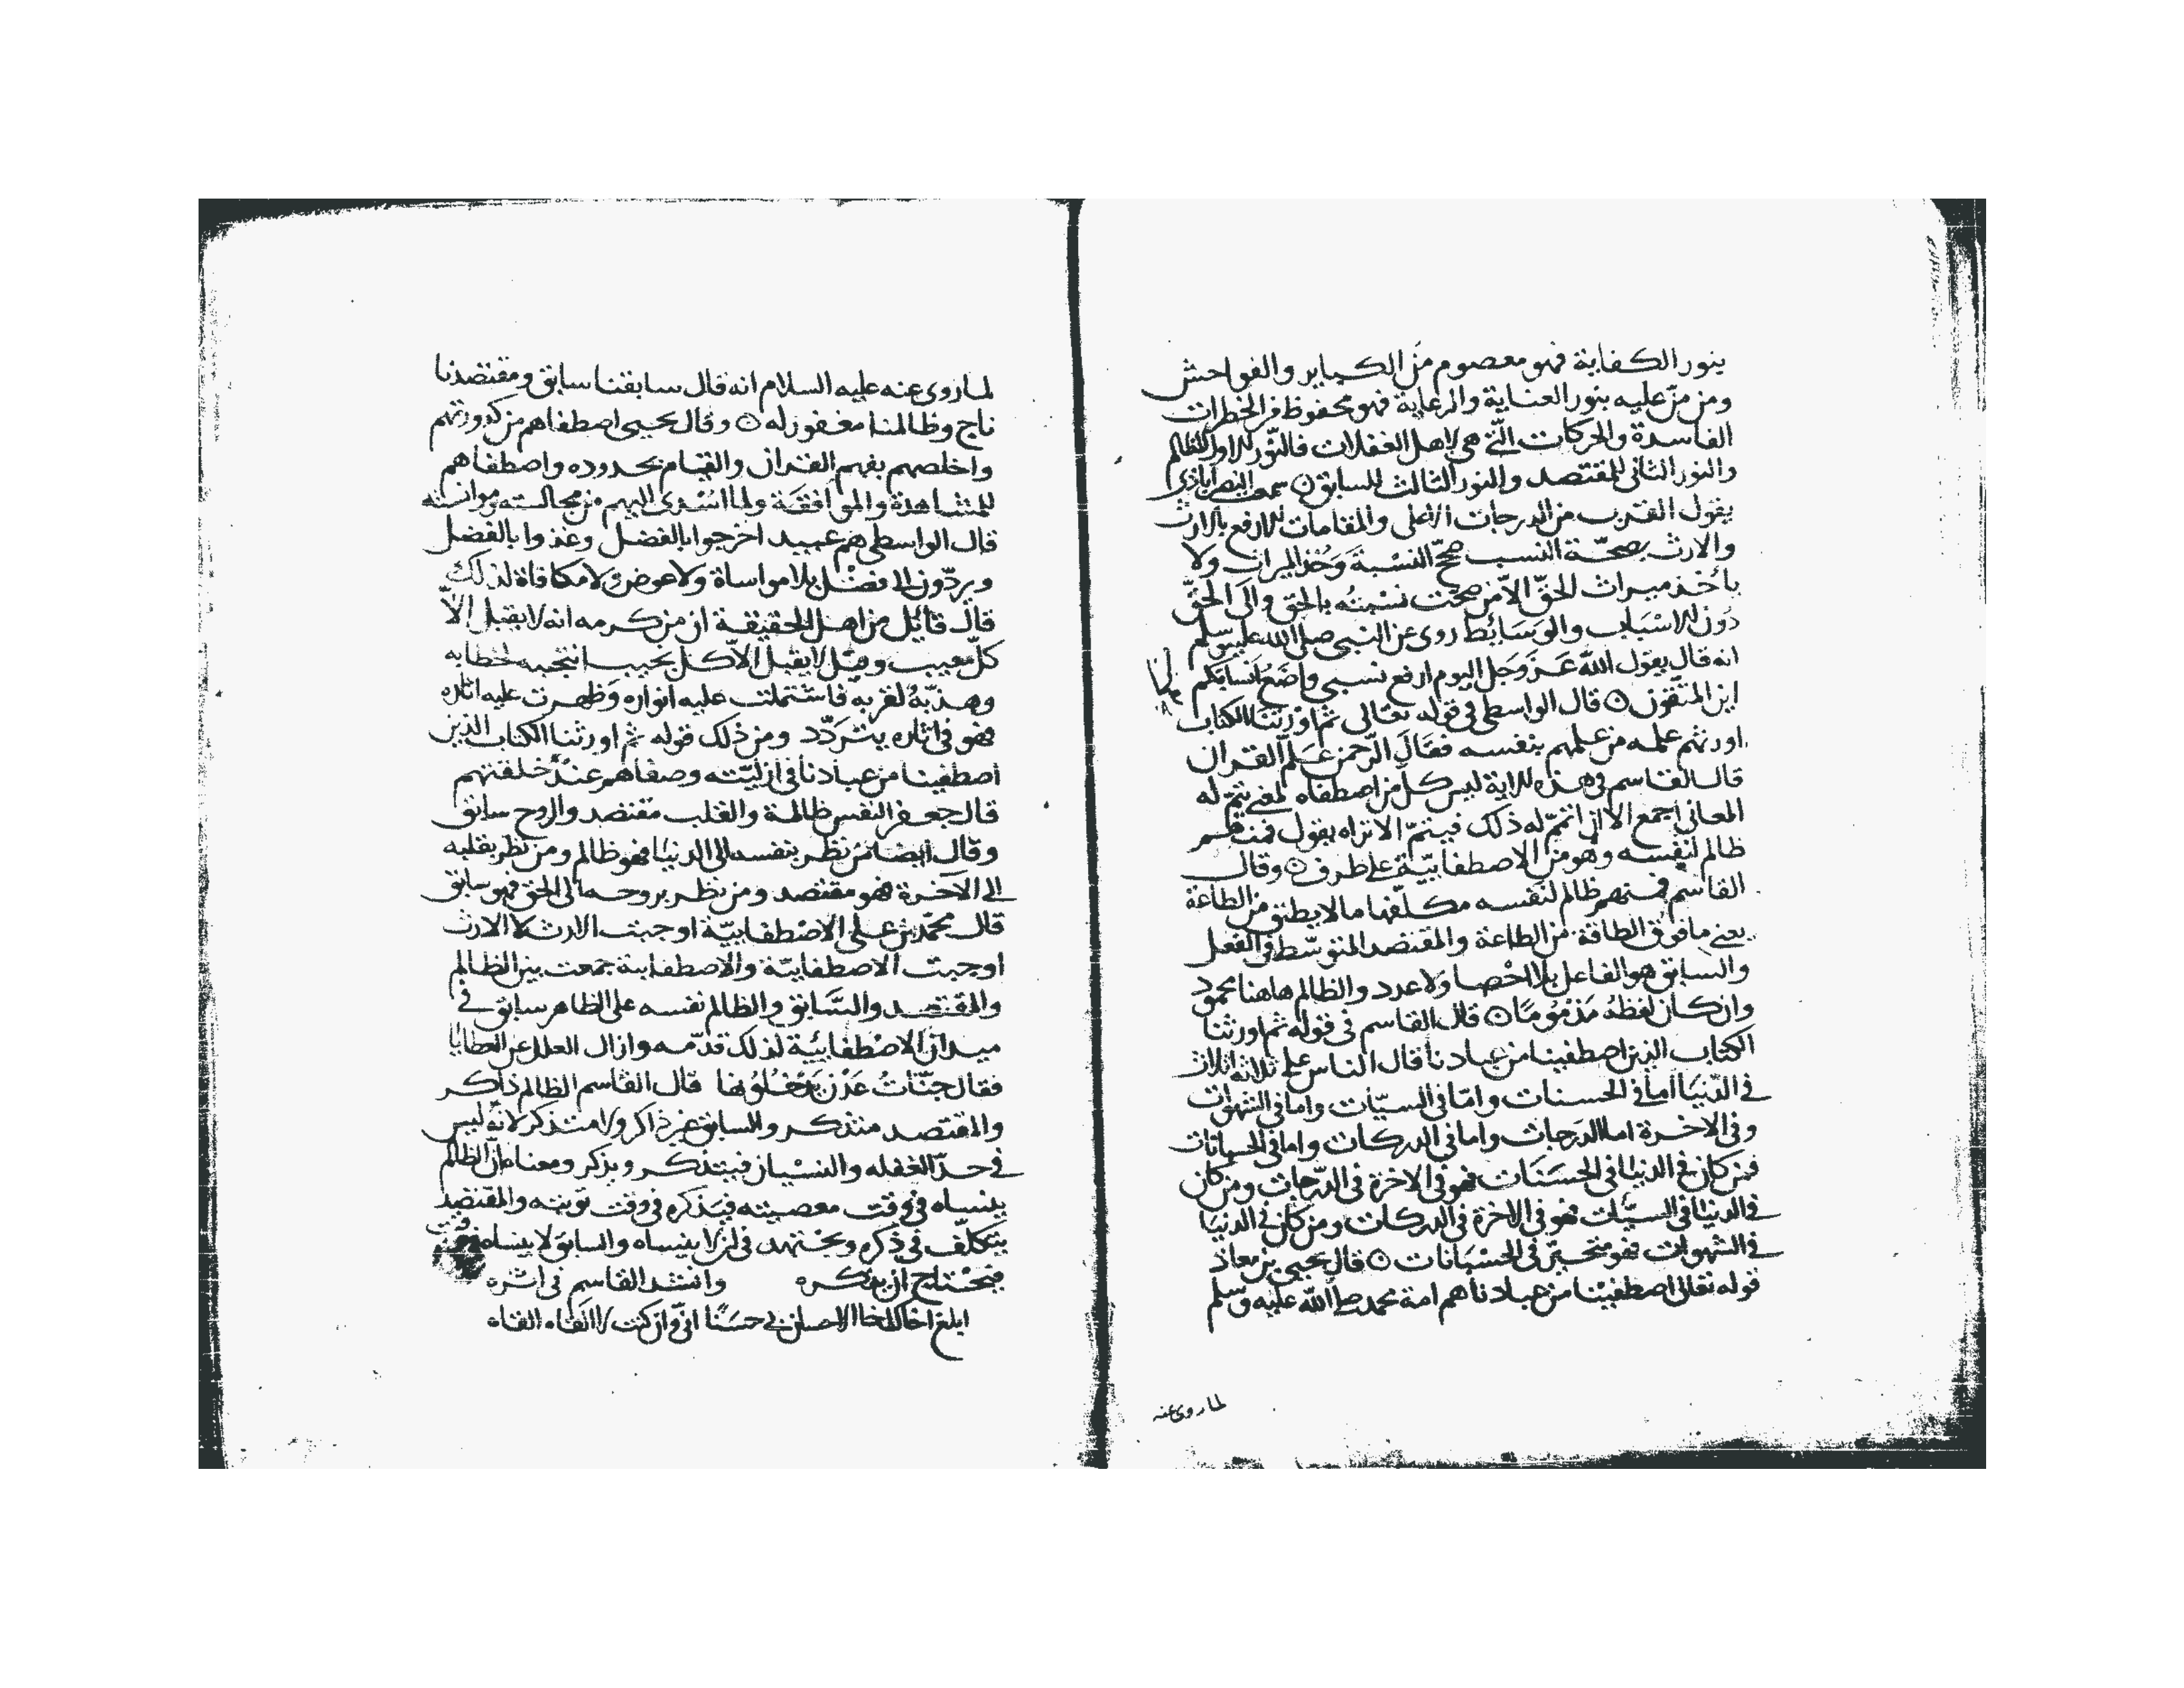 بنور الكفاية فهو معصوم من الكباير والفواحش
ومن منّ عليه بنور العناية والرعاية فهو محفوظ من الخطرات
الفاسدة والحركات التي هي لاهل الغفلات فالنّور الاول للظالم
والنور الثاني للمقتصد والنور الثالث للسابق ۞ سمعت النصراباذي
يقول القرب من الدرجات الاعلى والمقامات الارفع بالارث
والارث بصحّة النسب صحّح النسبة وخذ الميراث ولا
يأخذ ميراث الحقّ الا من صحّت نسبته بالحق والى الحقّ
دون الاسباب والوسائط روى عن النبي صلى الله عليه وسلم
انه قال يقول الله عزّ وجل اليوم ارفع نسبي واضع انسابكم
اين المتّقون ۞ قال الواسطي في قوله تعالى ثم اورثنا الكتاب
اورثهم علمه من علمهم بنفسه فقال الرّحمن علّم القران
قال القاسم في هذه الاية ليس كل من اصطفاه لمعنى يتمّ له
المعاني اجمع الا ان اتمّ له ذلك فيتمّ الا تراه يقول فمنهم
ظالم لنفسه وهو من الاصطفايّية على طرف ۞ وقال
القاسم فمنهم ظالم لنفسه مكلّفها ما لا يطيق من الطاعة
يعنى ما فوق الطاقة من الطاعة والمقتصد المتوسّط في الفعل
والسابق هو الفاعل بلا احصا ولا عدد والظالم هاهنا محمود
وان كان لفظه مذمومًا ۞ قال القاسم في قوله ثم اورثنا
الكتاب الذين اصطفينا من عبادنا قال الناس على ثلاثة اثلاث
في الدّنيا اما في الحسنات وامّا في السيّات واما في الشهوات
وفي الاخرة اما الدرجات واما في الدركات واما في الحسبانات
فمن كان في الدنيا في الحسنات فهو في الاخرة في الدّرجات ومن كان
في الدنيا في السيّات فهو في الاخرة في الدركات ومن كان في الدنيا
في الشهوات فهو متحيّر في الحسبانات ۞ قال يحيى بن معاذ
قوله تعالى اصطفينا من عبادنا هم امة محمد صلى الله عليه وسلم
لما روى عنه
لما روى عنه عليه السلام انه قال سابقنا سابق ومقتصدنا
ناج وظالمنا مغفور له ۞ وقال يحيى اصطفاهم من كدورتهم
واخلصهم بفهم القران والقيام بحدوده واصطفاهم
للمشاهدة والموافقة ولما اسدى اليهم من مجالسته وموانسته
قال الواسطي هم عبيد اخرجوا بالفضل وغذوا بالفضل
ويردّون الى فضل بلا مواساة ولا عوض ولا مكافاة لذلك
قال قائل من اهل الحقيقة ان من كرمه انه لا يقبل الاّ
كلّ معيب وقيل لا يقبل الاّ كل نجيب انتجبه لخطابه
وهذّبه لقربه فاشتملت عليه انواره وظهرت عليه اثاره
فهو في اثاره يتردّد ومن ذلك قوله ثم اورثنا الكتاب الذين
اصطفينا من عبادنا في ازليّته وصفاهم عند خلقتهم
قال جعفر النفس ظالمة والقلب مقتصد والروح سابق
وقال ايضا من نظر بنفسه الى الدنيا فهو ظالم ومن نظر بقلبه
الى الآخرة فهو مقتصد ومن نظر بروحه الى الحق فهو سابق
قال محمّد بن على الاصطفايّية اوجبت الارث لا الارث
اوجبت الاصطفايّية والاصطفايية جمعت بين الظالم
والمقتصد والسّابق والظالم نفسه على الظاهر سابق في
ميدان الاصطفائيّة لذلك قدّمه وازال العلل عن العطايا
فقال جنّات عدن يدخلونها قال القاسم الظالم ذاكر
والمقتصد متذكر والسابق غير ذاكر ولا متذكر لانّه ليس
في حدّ الغفله والنسيان فيتذكر ويذكر ومعناه انّ الظالم
ينساه في وقت معصيته فيذكره في وقت توبته والمقتصد
يتكلّف في ذكره ويجتهد في ان لا ينساه والسابق لا ينساه
فيحتاج ان يذكره وانشد القاسم في اثره
ابلغ اخاك اخا الاحسان بي حسنًا انّي وان كنت لا القاه القاه